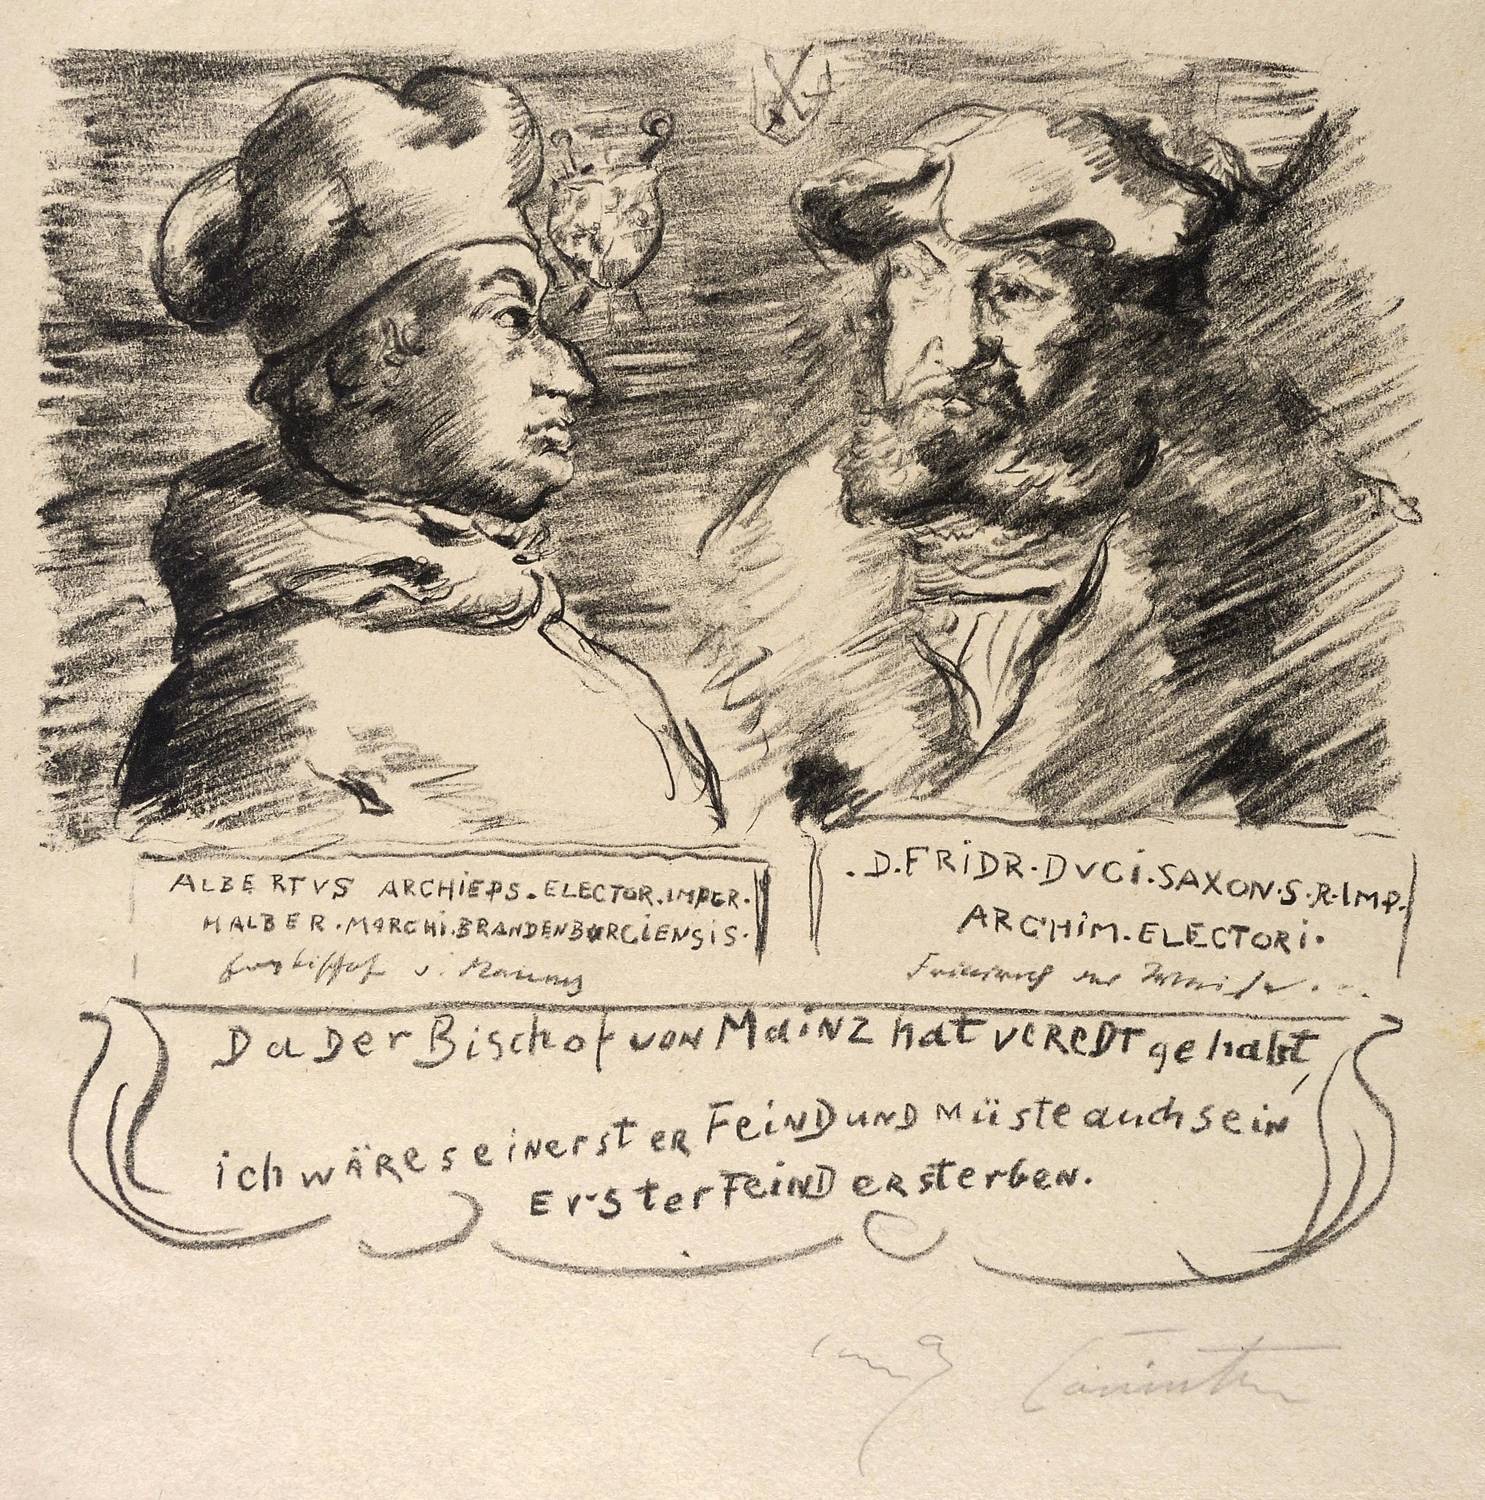 ALBERTVS ARCHiEPS. ELECTOR. IMPER.
HALBER. MARCHi. BRANDENBURGiENSiS.
Erzbischof v. Mainz
. D. FRiDR. DVCi. SAXON. S. R. IMP.
ARCHiM. ELECTORi.
Friedrich der Weise
Da Der Bischof von Mainz hat veredt gehabt,
ich wäre sein erster Feind und müste auch sein
Erster Feind ersterben.
Lovis Corinth